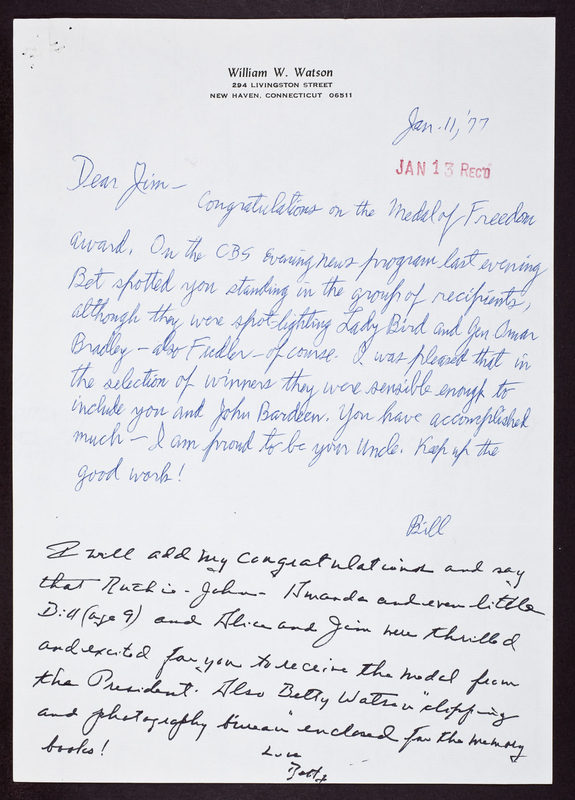 William W. Watson
294 LIVINGSTON STREET
NEW HAVEN, CONNECTICUT 06511
Jan. 11, '77
JAN 13 REC'D
Dear Jim —
Congratulations on the Medal of Freedom
award. On the CBS evening news program last evening
Bet spotted you standing in the group of recipients,
although they were spot-lighting Lady Bird and Gen Omar
Bradley — also Fiedler — of course. I was pleased that in
the selection of winners they were sensible enough to
include you and John Bardeen. You have accomplished
much — I am proud to be your Uncle. Keep up the
good work!
Bill
I will add my congratulations and say
that Ruthie - John - Amanda and even little
Bill (age 9) and Alice and Jim were thrilled
and excited for you to receive the medal from
the President. Also Betty Watson "clipping
and photography bureau" enclosed for the memory
books!
Love
Betty